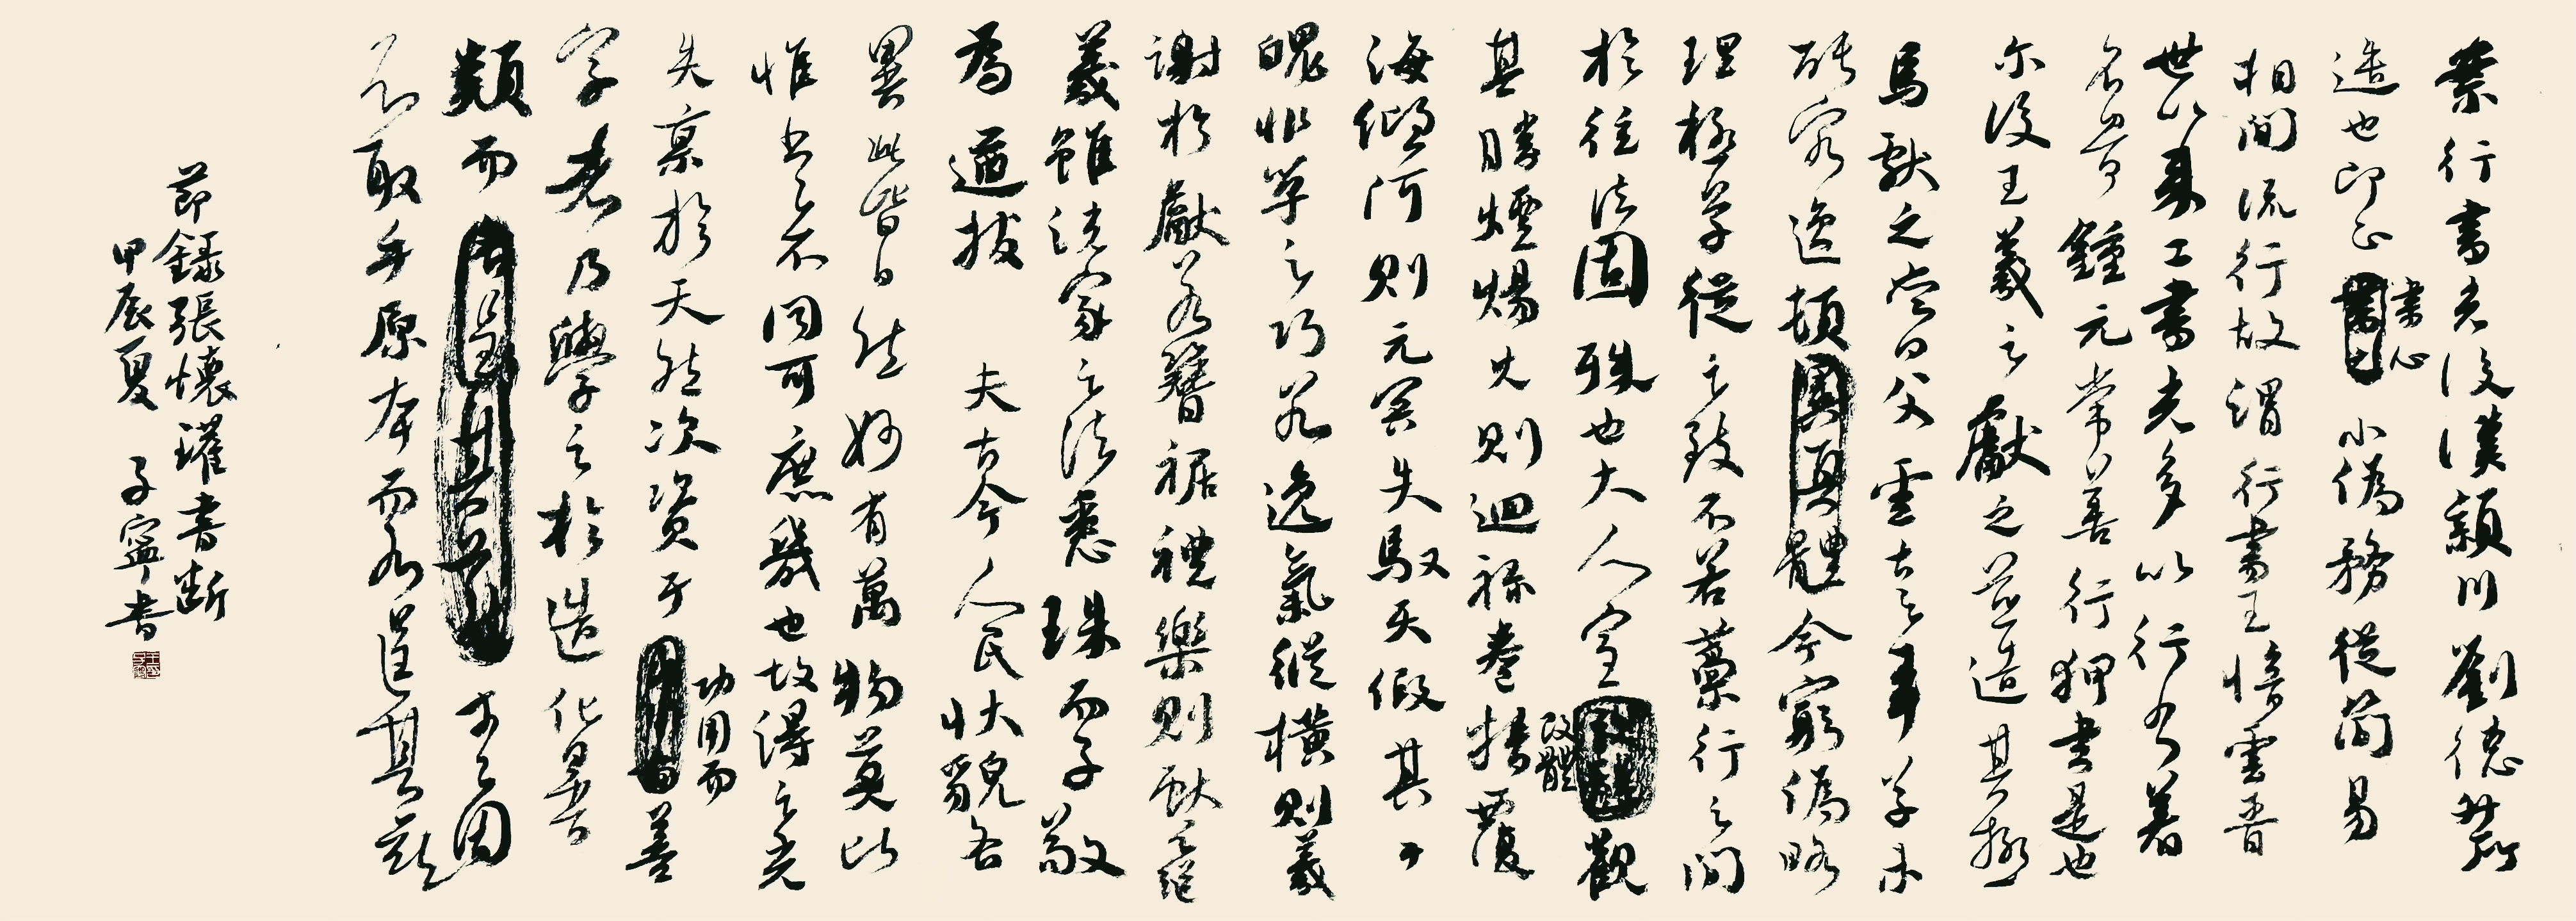 案行書者後漢潁川劉德升所
造也即正書心小偽務從簡易
相間流行故謂行書王愔雲晉
世以來工書者多以行書著
名昔鍾元常善行狎書是也
爾後王羲之獻之並造其極
焉獻之嘗白父雲古之章草未
能宏逸頓異真體今窮偽略
理極草從之致不若藁行之間
於往法固殊也大人宜改體觀
其騰煙煬火則迴祿喪精覆
海傾河則元冥失馭天假其
魄非學之巧若逸氣縱橫則羲
謝於獻若簪裾禮樂則獻之繼
羲雖諸家之法悉殊而子敬
為遒拔 夫古今人民狀貌各
異此皆自然妙有萬物莫比
惟書之不同可庶幾也故得之先
失稟於天然次資于功用而善
字者乃學之於造化異書
類而 求之因
不取乎原本而各逞其欲
節錄張懷瓘書斷
甲辰夏 子寧書